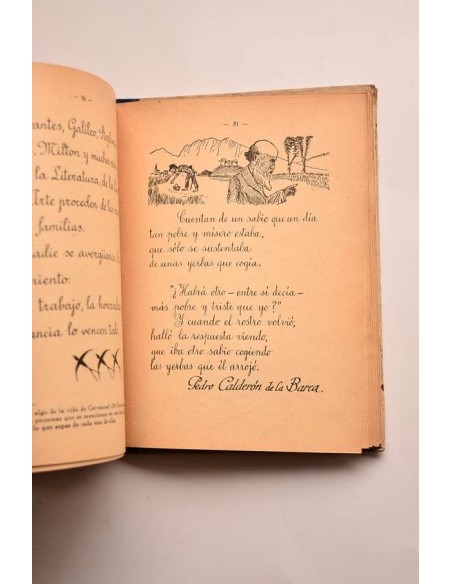 antes, Galileo,
Milton y muchos
la Literatura, de la
Arte proceden de
familias.
adie se avergüenza
miento:
trabajo, la honradez
ancia lo vencen todo.
algo de la vida de Cervantes
personas que se mencionan
do que sepas de cada uno
— 31 —
Cuentan de un sabio que un día
tan pobre y mísero estaba,
que sólo se sustentaba
de unas yerbas que cogía.
"¿Habrá otro —entre sí decía—
más pobre y triste que yo?"
Y cuando el rostro volvió,
halló la respuesta viendo,
que iba otro sabio cogiendo
las yerbas que él arrojó.
Pedro Calderón de la Barca.